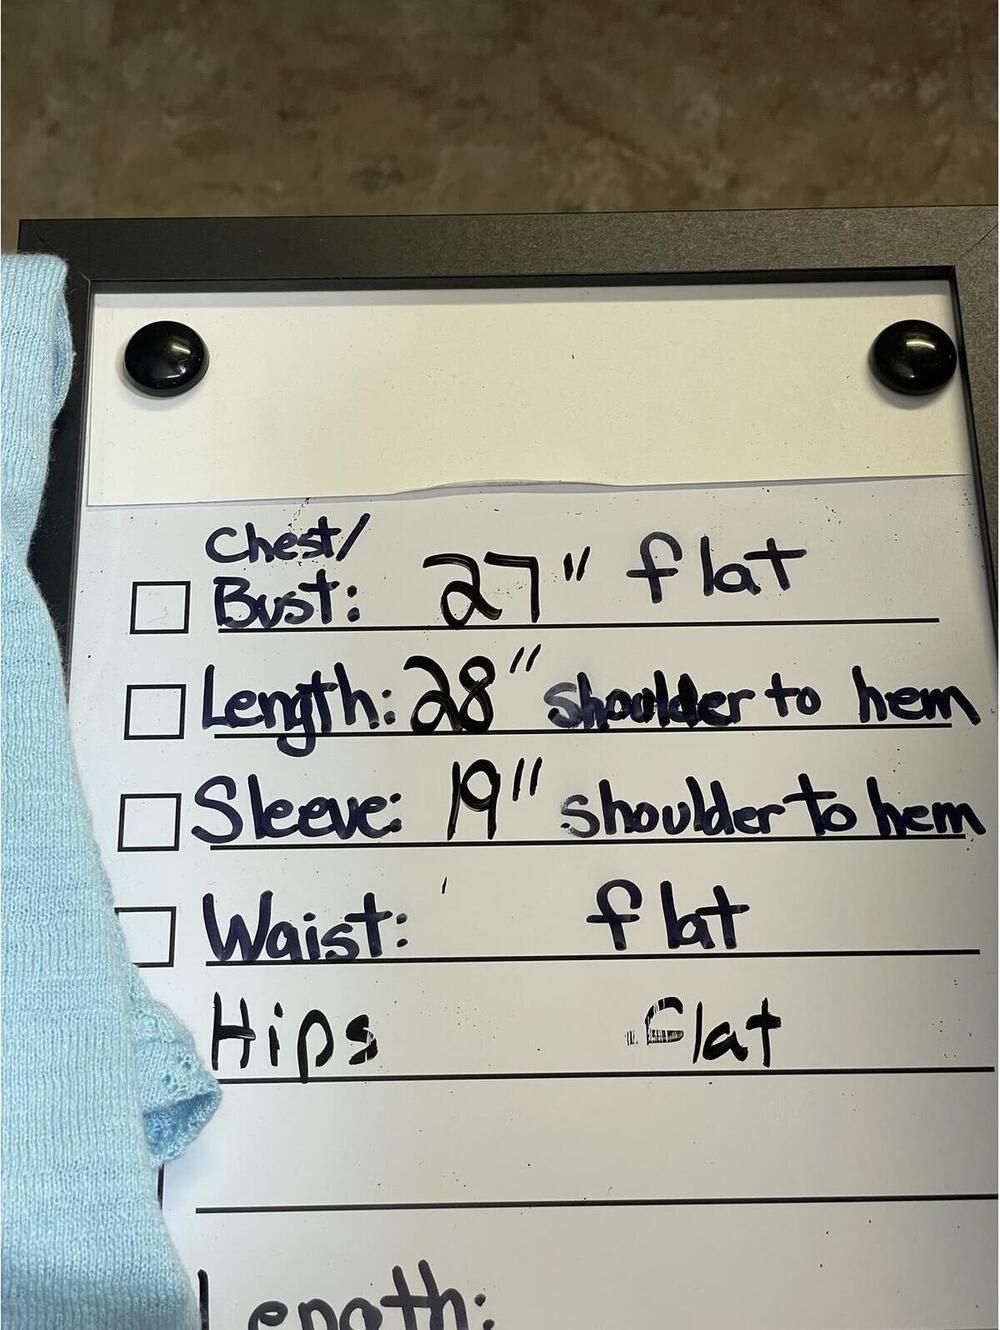 Chest/
Bust: 27" flat
Length: 28" shoulder to hem
Sleeve: 19" shoulder to hem
Waist: flat
Hips flat
Length: